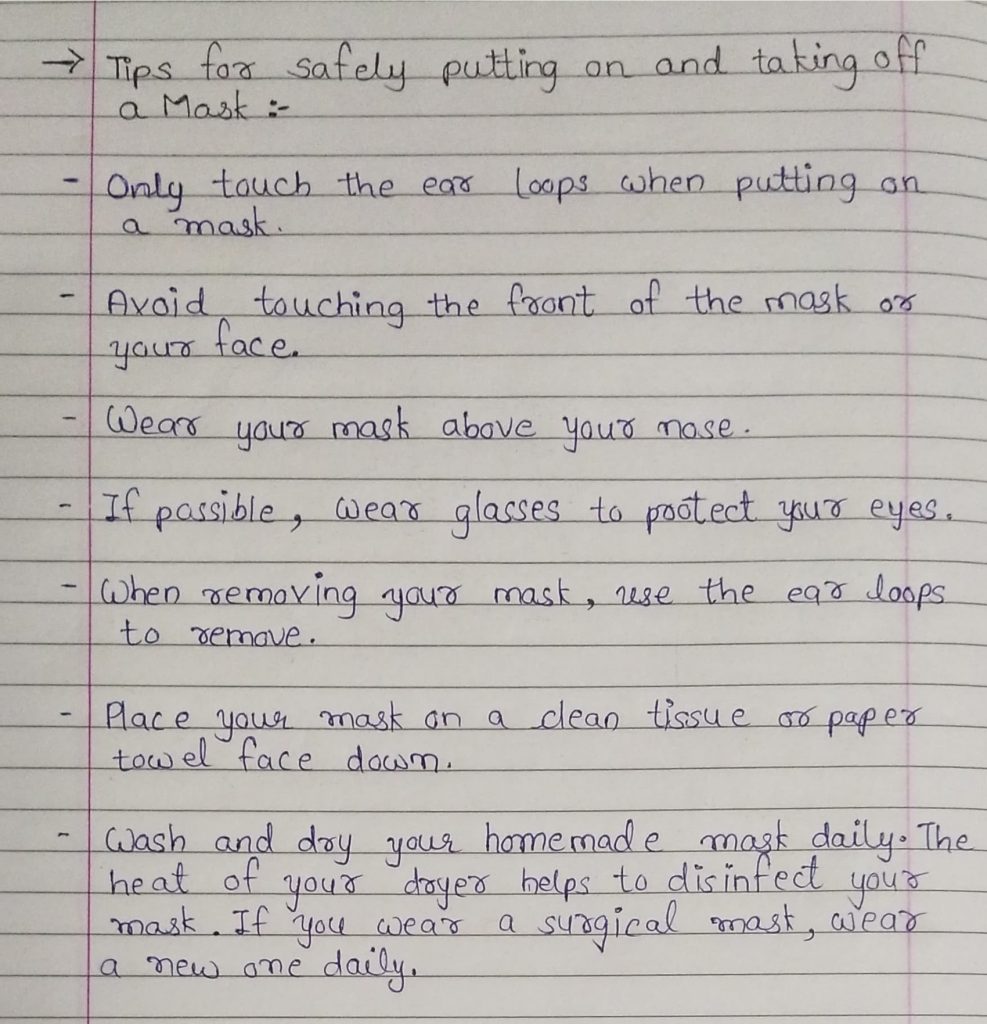 → Tips for safely putting on and taking off
a Mask :-
- Only touch the ear loops when putting on
a mask.
- Avoid touching the front of the mask or
your face.
- Wear your mask above your nose.
- If possible, wear glasses to protect your eyes.
- When removing your mask, use the ear loops
to remove.
- Place your mask on a clean tissue or paper
towel face down.
- Wash and dry your homemade mask daily. The
heat of your dryer helps to disinfect your
mask. If you wear a surgical mask, wear
a new one daily.